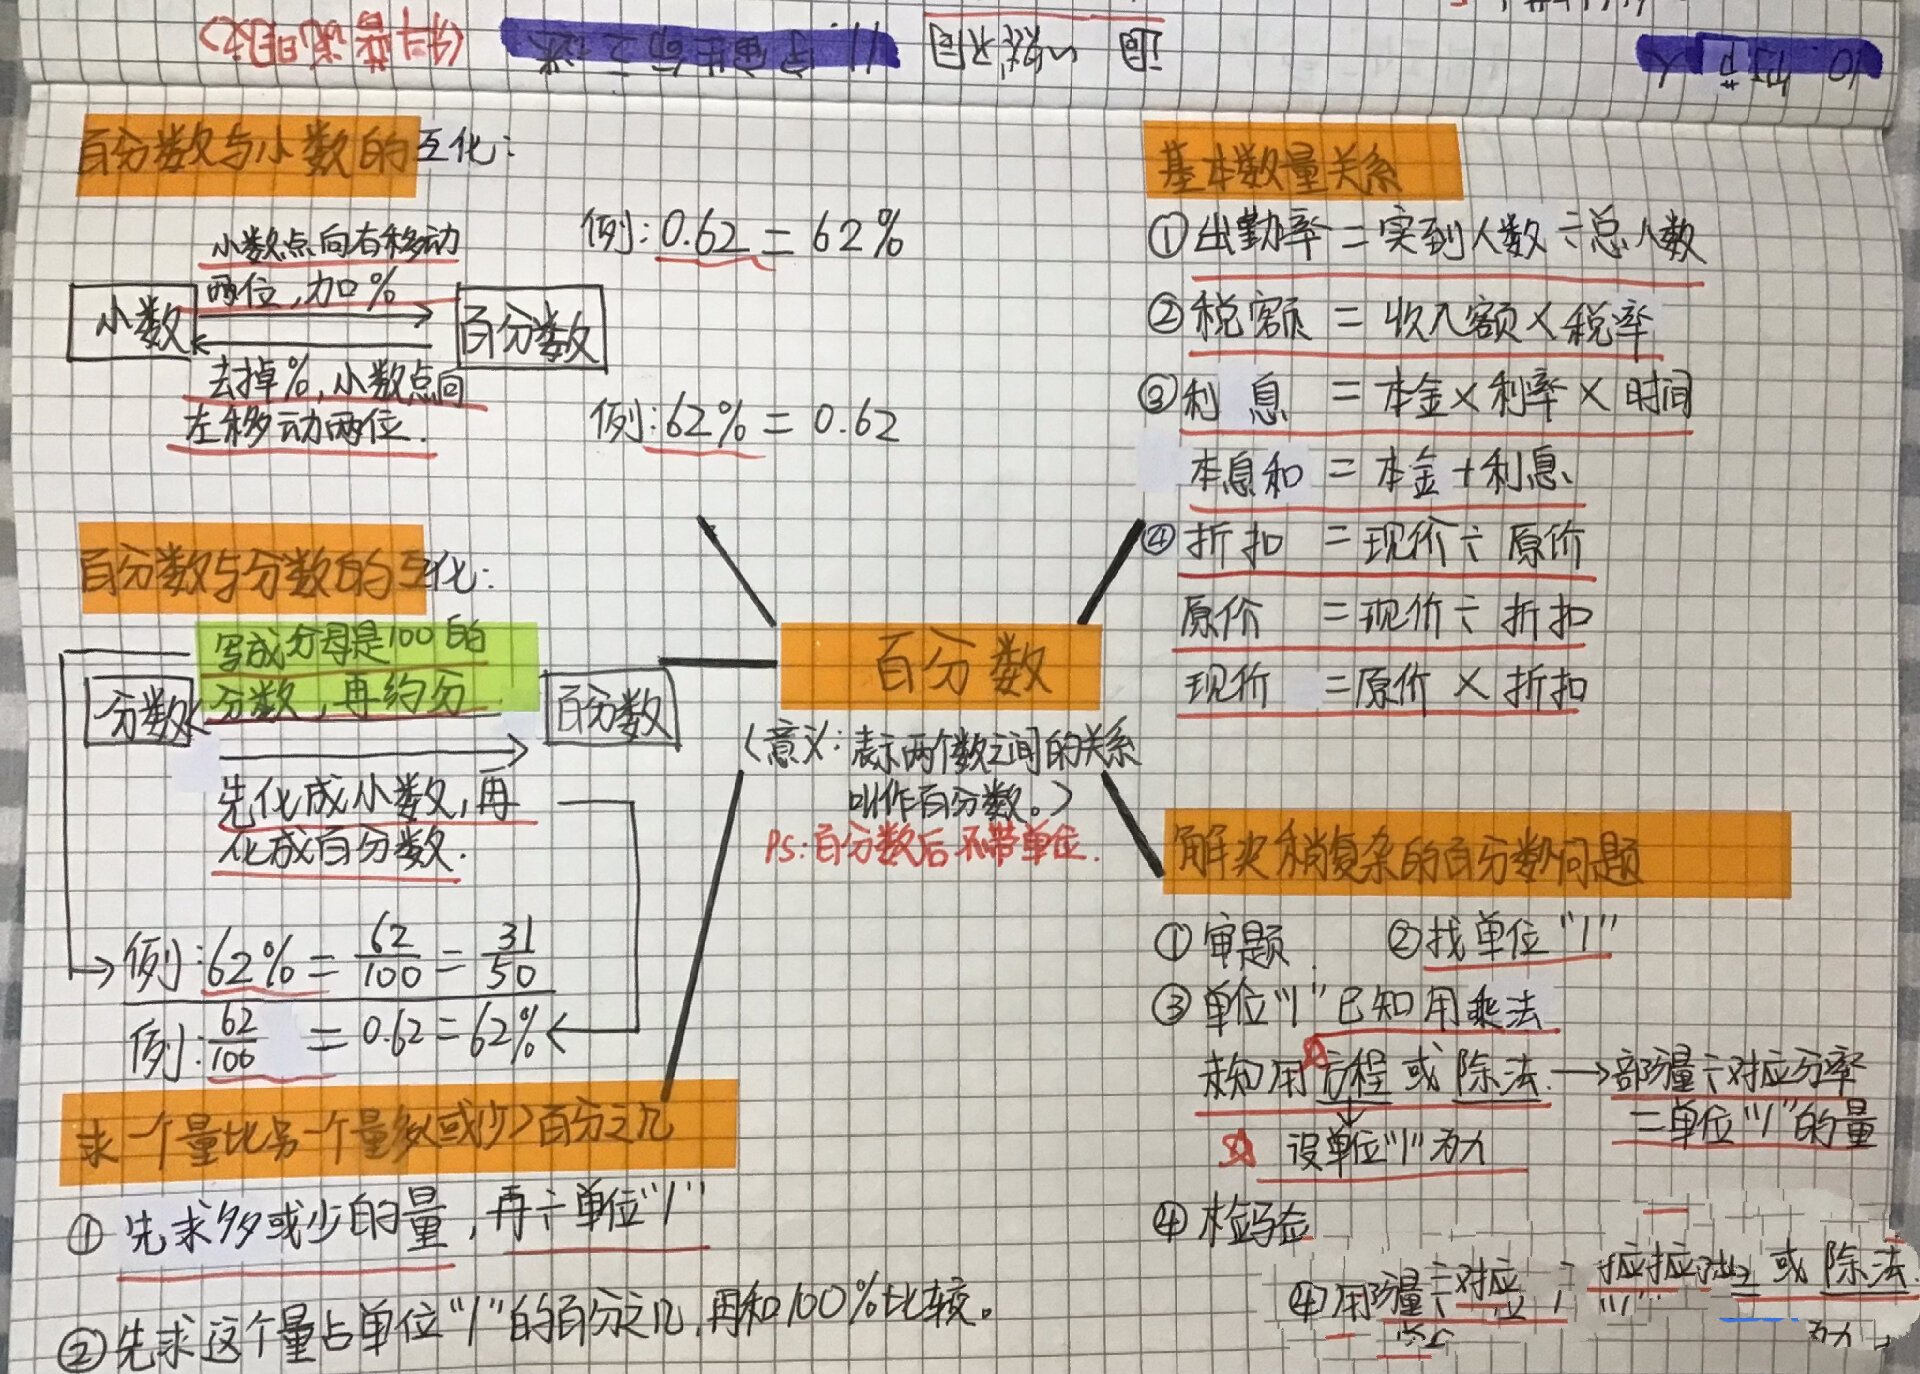 百分数与小数的互化:
小数点向右移动
两位,加%
小数
百分数
去掉%,小数点向
左移动两位.
例:0.62=62%
例:62%=0.62
百分数与分数的互化:
写成分母是100的
分数,再约分
分数
百分数
先化成小数,再
化成百分数.
例:62%=62/100=31/50
例:62/100=0.62=62%
求一个量比另一个量多(或少)百分之几
①先求多或少的量,再÷单位"1"
②先求这个量占单位"1"的百分之几,再和100%比较。
百分数
(意义:表示两个数之间的关系
叫作百分数。)
PS:百分数后不带单位.
基本数量关系
①出勤率=实到人数÷总人数
②税额=收入额×税率
③利息=本金×利率×时间
本息和=本金+利息
④折扣=现价÷原价
原价=现价÷折扣
现价=原价×折扣
解决稍复杂的百分数问题
①审题 ②找单位"1"
③单位"1"已知用乘法
未知用方程或除法→部分量÷对应分率
=单位"1"的量
设单位"1"为x
④检验
或除法